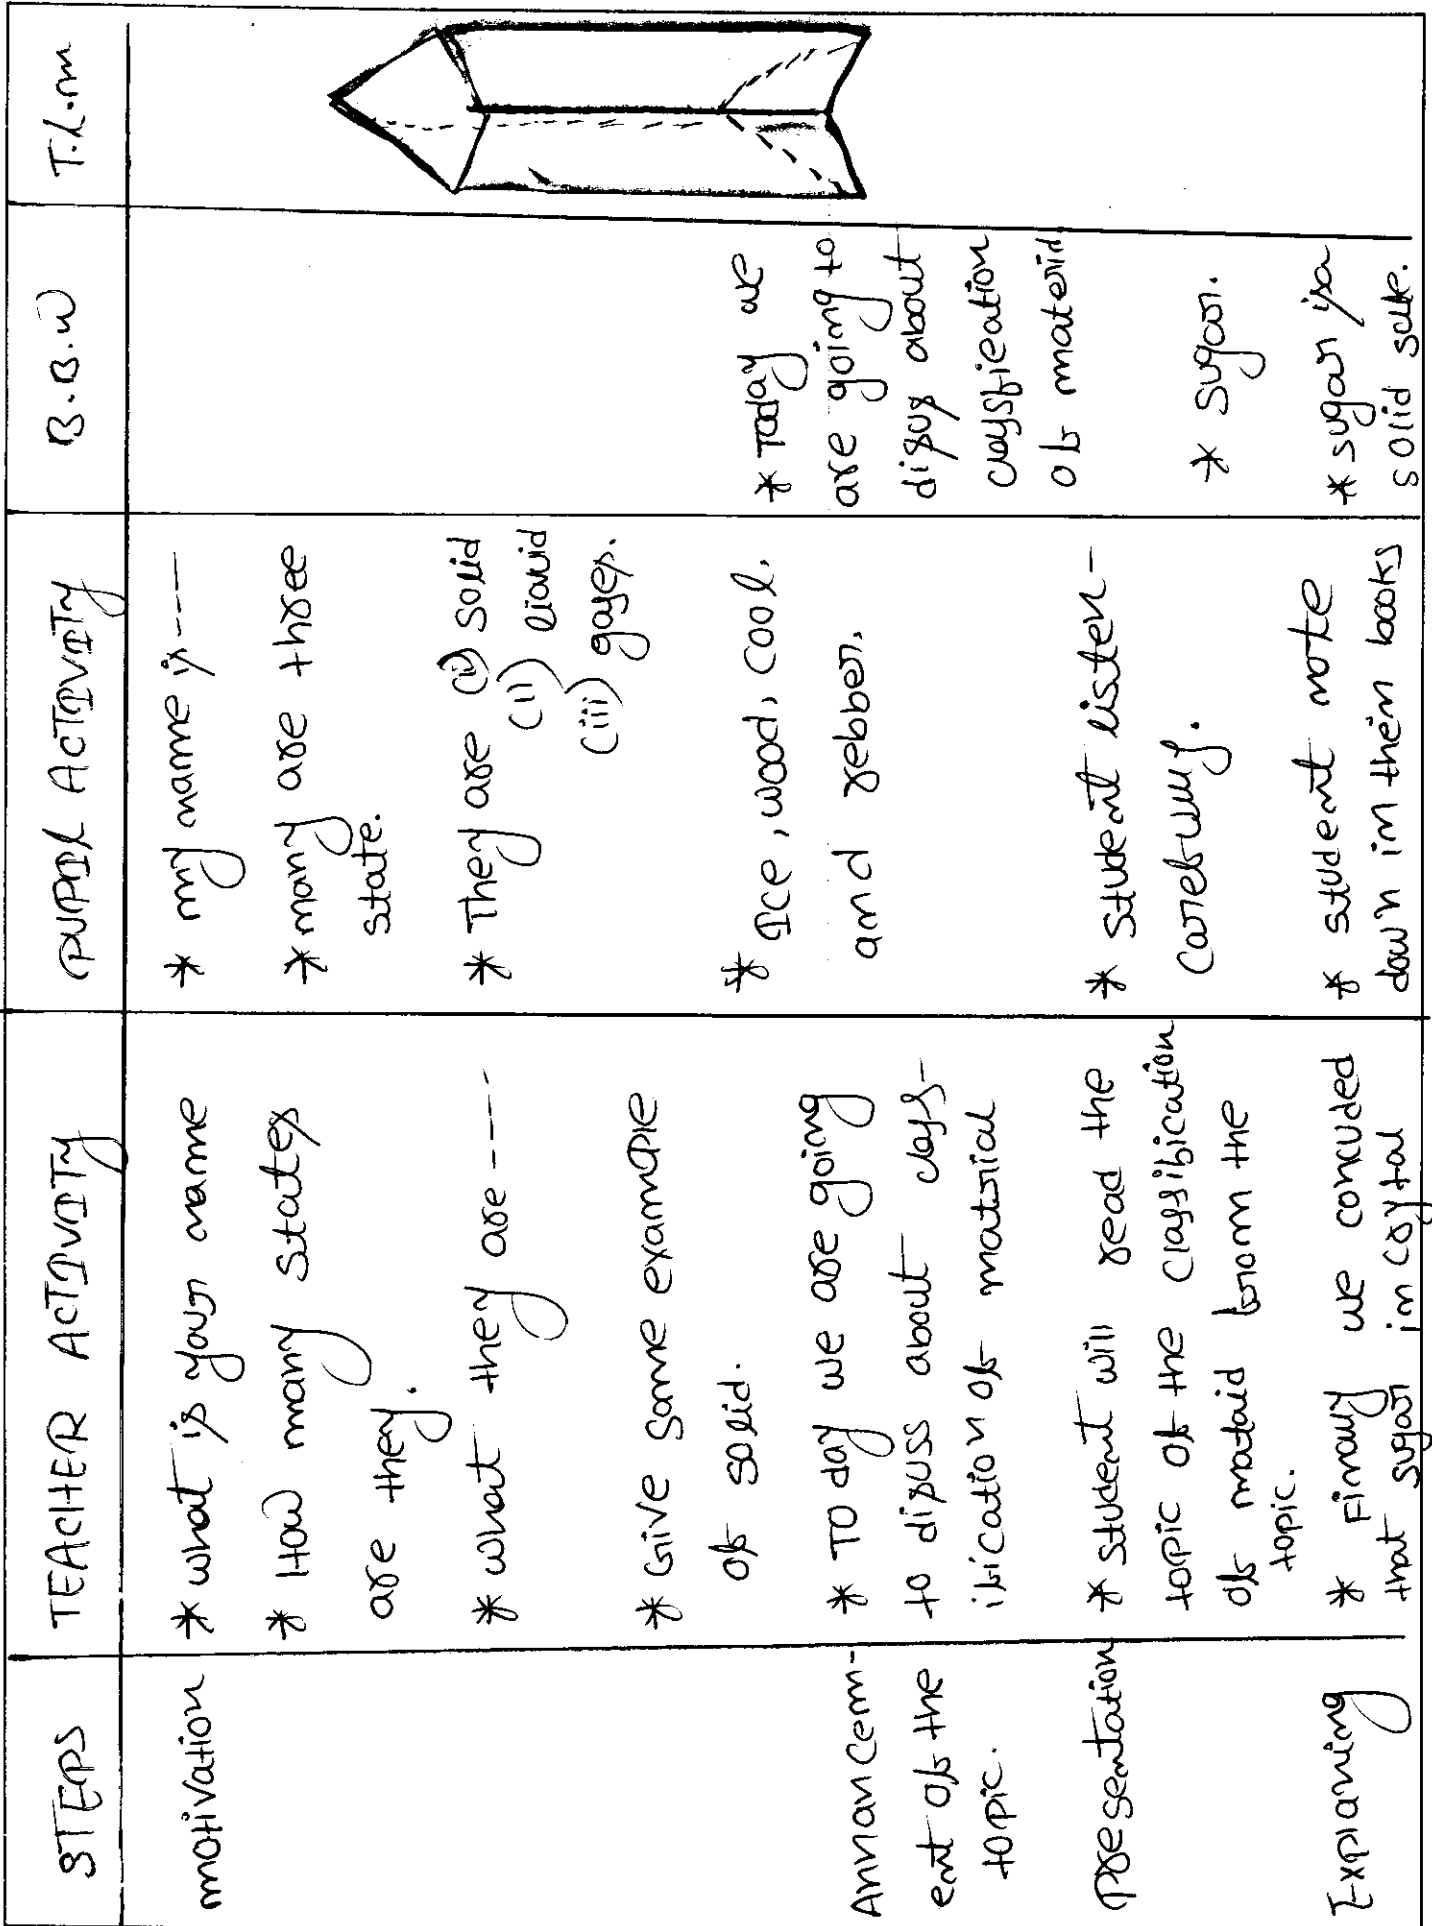 STEPS
TEACHER ACTIVITY
PUPIL ACTIVITY
B.B.W
T.L.m
motivation
* what is your name
* How many states
are they.
* what they are ----
* Give some example
of solid.
* my name is ----
* many are three
state.
* They are (i) solid
(ii) liauid
(iii) gases.
* Ice, wood, cool.
and rebber.
Annancem-
ent of the
topic.
* To day we are going
to disuss about class-
ification of matarial
* Today we
are going to
disus about
classfication
of materid
presentation
* student will read the
topic of the classification
of mataid from the
topic.
* student listen-
carefully.
* sugar.
Explaning
* Finally we concuded
that sugar in coytal
* student note
down in their books
* sugar is a
solid